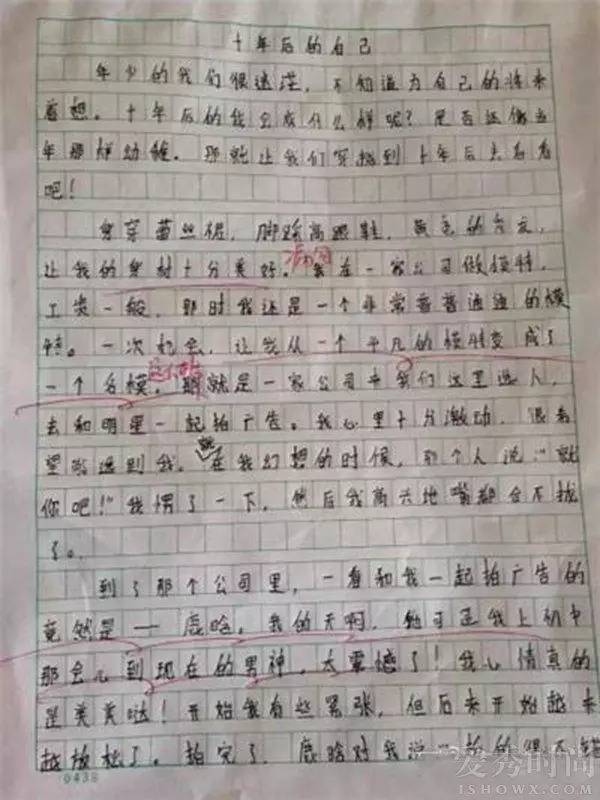 十年后的自己
年少的我们很迷茫，不知道为自己的将来
着想。十年后的我会成什么样呢？是否还像当
年那样幼稚。那就让我们穿梭到十年后去看看
吧！
身穿蕾丝裙，脚踩高跟鞋，黄色的
让我的身材十分美好。我在一家公司做模特，
工资一般，那时我还是一个非常普普通通的模
特。一次机会，让我从一个平凡的模特变成了
一个名模。那就是一家公司来我们这里选人，
去和明星一起拍广告。我心里十分激动，很希
望能选到我。就在我幻想的时候，那个人说：“就
你吧！”我愣了一下，然后我高兴地嘴都合不拢
了。
到了那个公司里，一看和我一起拍广告的
竟然是——鹿晗。我的天啊，他可是我上初中
那会儿到现在的男神，太震憾了！我心情真的
是美美哒！开始我有些紧张，但后来开始越来
越放松了。拍完了，鹿晗对我说：“拍的很不错
0438
爱秀时间
ISHOWX.COM